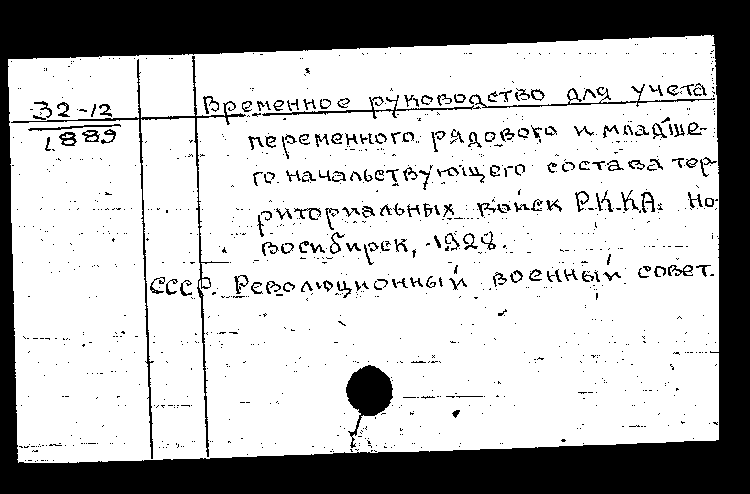 32-12
1889
Временное руководство для учета
переменного рядового и младше-
го начальствующего состава тер-
риториальных войск Р.К.К.А. Но-
восибирск, 1928.
СССР. Революционный военный совет.